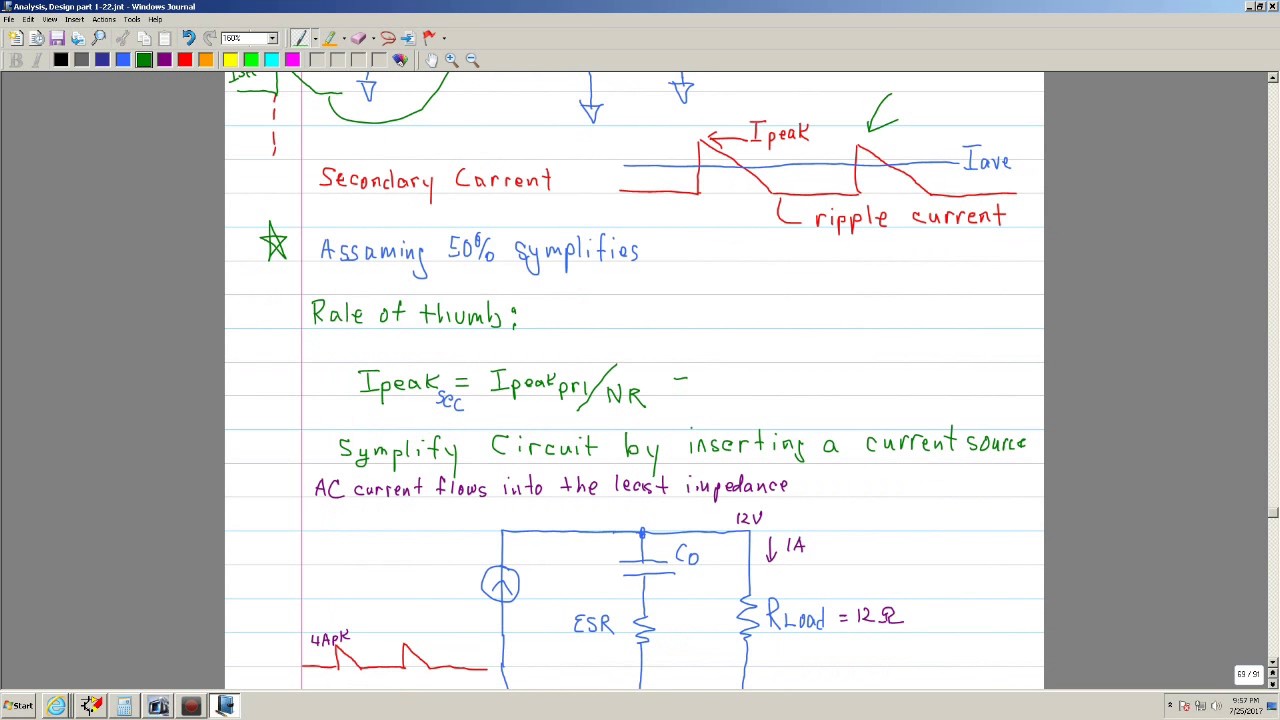 Analysis, Design part 1-22.jnt - Windows Journal
File Edit View Insert Actions Tools Help
160%
B I
Ipeak
Iave
Secondary Current
ripple current
Assaming 50% symplifies
Rale of thumb:
Ipeak sec = Ipeak pri/NR =
Symplify Circuit by inserting a current source
AC current flows into the least impedance
12V
1A
Co
ESR
RLoad = 12Ω
4Apk
69 / 91
Start
9:57 PM
7/25/2017